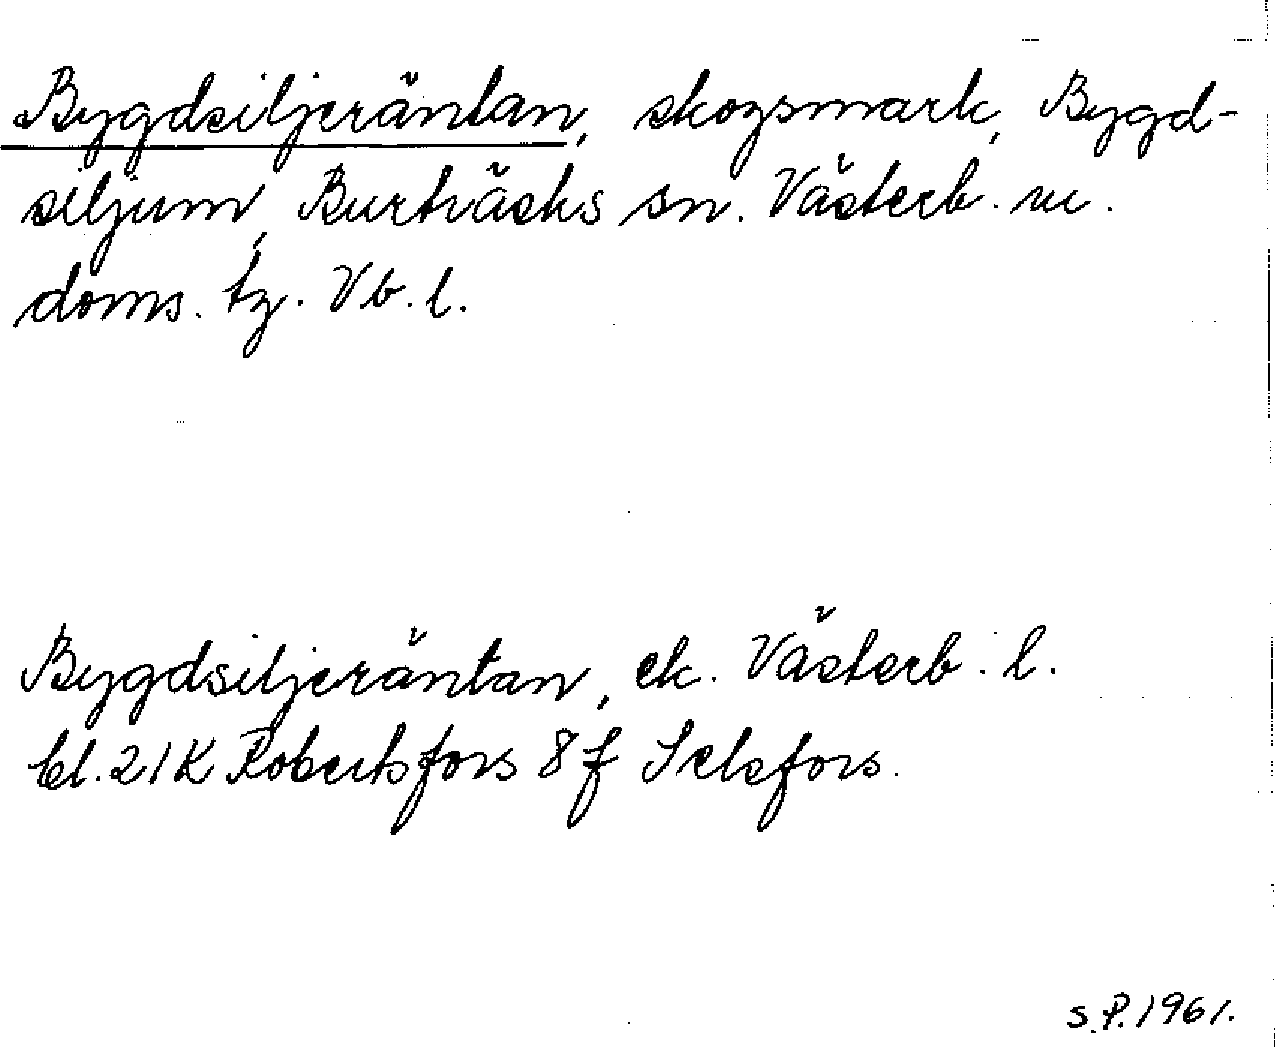 Bygdsiljeräntan, skogsmark, Bygd-
siljum, Burträsks sn. Västerb. m.
doms. tg. Vb. l.
Bygdsiljeräntan, ek. Västerb. l.
bl. 21K Robertsfors 8f Selsfors.
S.P. 1961.